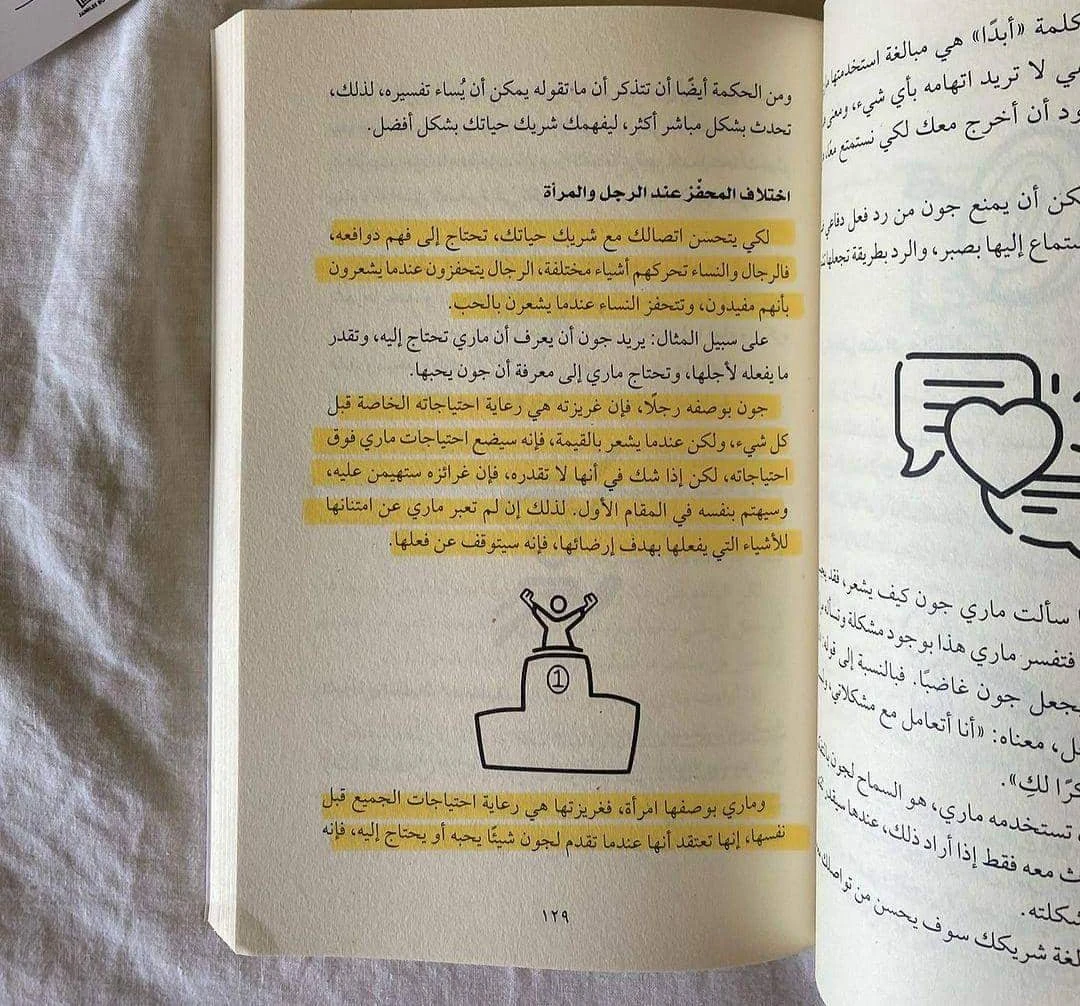 ومن الحكمة أيضًا أن تتذكر أن ما تقوله يمكن أن يُساء تفسيره، لذلك،
تحدث بشكل مباشر أكثر، ليفهمك شريك حياتك بشكل أفضل.
اختلاف المحفّز عند الرجل والمرأة
لكي يتحسن اتصالك مع شريك حياتك، تحتاج إلى فهم دوافعه،
فالرجال والنساء تحركهم أشياء مختلفة، الرجال يتحفزون عندما يشعرون
بأنهم مفيدون، وتتحفز النساء عندما يشعرن بالحب.
على سبيل المثال: يريد جون أن يعرف أن ماري تحتاج إليه، وتقدر
ما يفعله لأجلها، وتحتاج ماري إلى معرفة أن جون يحبها.
جون بوصفه رجلًا، فإن غريزته هي رعاية احتياجاته الخاصة قبل
كل شيء، ولكن عندما يشعر بالقيمة، فإنه سيضع احتياجات ماري فوق
احتياجاته، لكن إذا شك في أنها لا تقدره، فإن غرائزه ستهيمن عليه،
وسيهتم بنفسه في المقام الأول. لذلك إن لم تعبر ماري عن امتنانها
للأشياء التي يفعلها بهدف إرضائها، فإنه سيتوقف عن فعلها.
1
وماري بوصفها امرأة، فغريزتها هي رعاية احتياجات الجميع قبل
نفسها، إنها تعتقد أنها عندما تقدم لجون شيئًا يحبه أو يحتاج إليه، فإنه
١٢٩
كلمة «أبدًا» هي مبالغة استخدمتها
لا تريد اتهامه بأي شيء، ومعنى
أن أخرج معك لكي نستمتع معًا
أن يمنع جون من رد فعل دفاعي
إليها بصبر، والرد بطريقة تجعلها
سألت ماري جون كيف يشعر، فقد
فتفسر ماري هذا بوجود مشكلة وتسأله
جون غاضبًا. فبالنسبة إلى
معناه: «أنا أتعامل مع مشكلاتي،
لكِ».
تستخدمه ماري، هو السماح لجون
معه فقط إذا أراد ذلك، عندها سيقدر
شريكك سوف يحسن من تواصلك